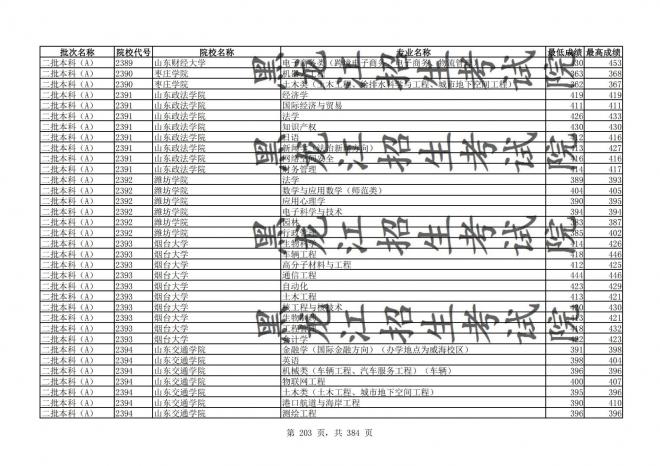 批次名称 院校代号 院校名称 专业名称 最低成绩 最高成绩
二批本科(A) 2389 山东财经大学 电子商务类(跨境电子商务、电子商务、物流管理) 430 453
二批本科(A) 2390 枣庄学院 机器人工程 363 368
二批本科(A) 2390 枣庄学院 土木类(土木工程、给排水科学与工程、城市地下空间工程) 362 367
二批本科(A) 2391 山东政法学院 经济学 419 419
二批本科(A) 2391 山东政法学院 国际经济与贸易 411 411
二批本科(A) 2391 山东政法学院 法学 426 433
二批本科(A) 2391 山东政法学院 知识产权 430 430
二批本科(A) 2391 山东政法学院 日语 412 416
二批本科(A) 2391 山东政法学院 新闻学(法治新闻方向) 413 427
二批本科(A) 2391 山东政法学院 网络空间安全 416 416
二批本科(A) 2391 山东政法学院 财务管理 414 417
二批本科(A) 2392 潍坊学院 法学 389 393
二批本科(A) 2392 潍坊学院 数学与应用数学(师范类) 404 405
二批本科(A) 2392 潍坊学院 应用心理学 390 395
二批本科(A) 2392 潍坊学院 电子科学与技术 394 394
二批本科(A) 2392 潍坊学院 园林 383 387
二批本科(A) 2392 潍坊学院 行政管理 385 402
二批本科(A) 2393 烟台大学 生物科学 414 426
二批本科(A) 2393 烟台大学 车辆工程 418 446
二批本科(A) 2393 烟台大学 高分子材料与工程 412 425
二批本科(A) 2393 烟台大学 通信工程 444 446
二批本科(A) 2393 烟台大学 自动化 423 429
二批本科(A) 2393 烟台大学 土木工程 413 421
二批本科(A) 2393 烟台大学 核工程与核技术 420 430
二批本科(A) 2393 烟台大学 生物 413 421
二批本科(A) 2393 烟台大学 工程 418 432
二批本科(A) 2393 烟台大学 会计学 422 423
二批本科(A) 2394 山东交通学院 金融学(国际金融方向)(办学地点为威海校区) 391 398
二批本科(A) 2394 山东交通学院 英语 398 404
二批本科(A) 2394 山东交通学院 机械类(车辆工程、汽车服务工程)(车辆) 396 396
二批本科(A) 2394 山东交通学院 物联网工程 400 407
二批本科(A) 2394 山东交通学院 土木类(土木工程、城市地下空间工程) 396 395
二批本科(A) 2394 山东交通学院 港口航道与海岸工程 390 410
二批本科(A) 2394 山东交通学院 测绘工程 396 396
第 203 页, 共 384 页
黑龙江招生考试院
黑龙江招生考试院
黑龙江招生考试院
黑龙江招生考试院